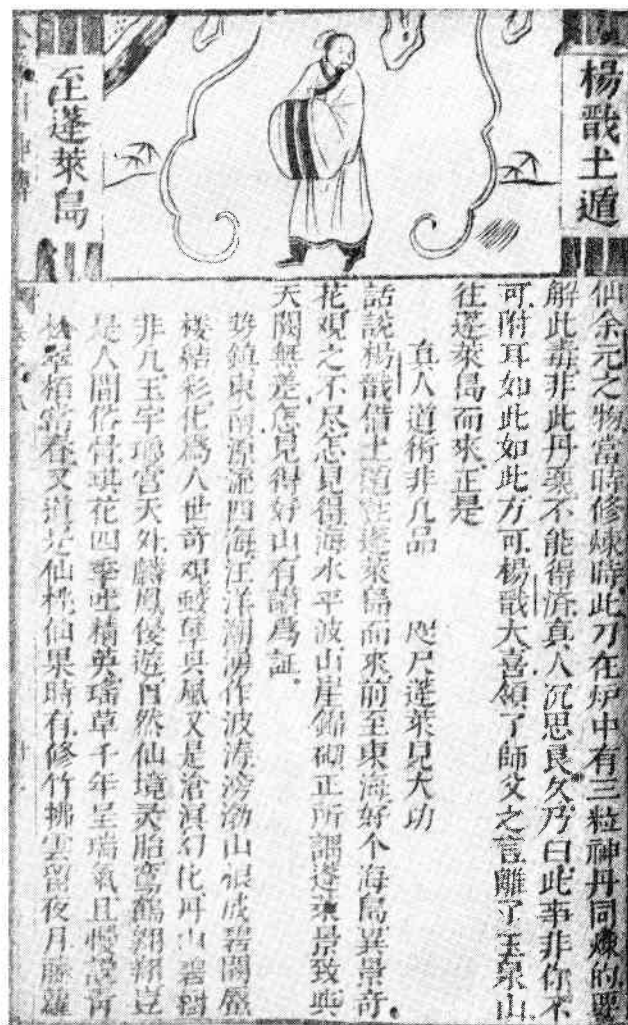 楊戩土遁
至蓬萊島
仙余元之物當時修煉時此刀在炉中有三粒神丹同煉的要
解此毒非此丹藥不能得济真人沉思良久乃曰此事非你不
可附耳如此如此方可楊戩大喜領了師父之言離了玉泉山
往蓬萊島而來正是
真人道術非凡品　咫尺蓬萊見大功
話說楊戩借土遁往蓬萊島而來前至東海好个海島異景奇
花观之不尽怎見得海水平波山崖錦砌正所謂蓬萊景致與
天闕無差怎見得好山有讚爲証
势鎮東南源流四海汪洋潮湧作波涛滂渤山根成碧闕蜃
楼結彩化為人世奇观蛟孽兴風又是滄溟幻化丹山碧樹
非凡玉宇瓊宮天外麟鳳優遊自然仙境灵胎鸞鶴翱翔豈
是人間俗骨琪花四季吐精英瑶草千年呈瑞氣且慢說青
松翠栢常春又道是仙桃仙果時有修竹拂雲留夜月藤蘿